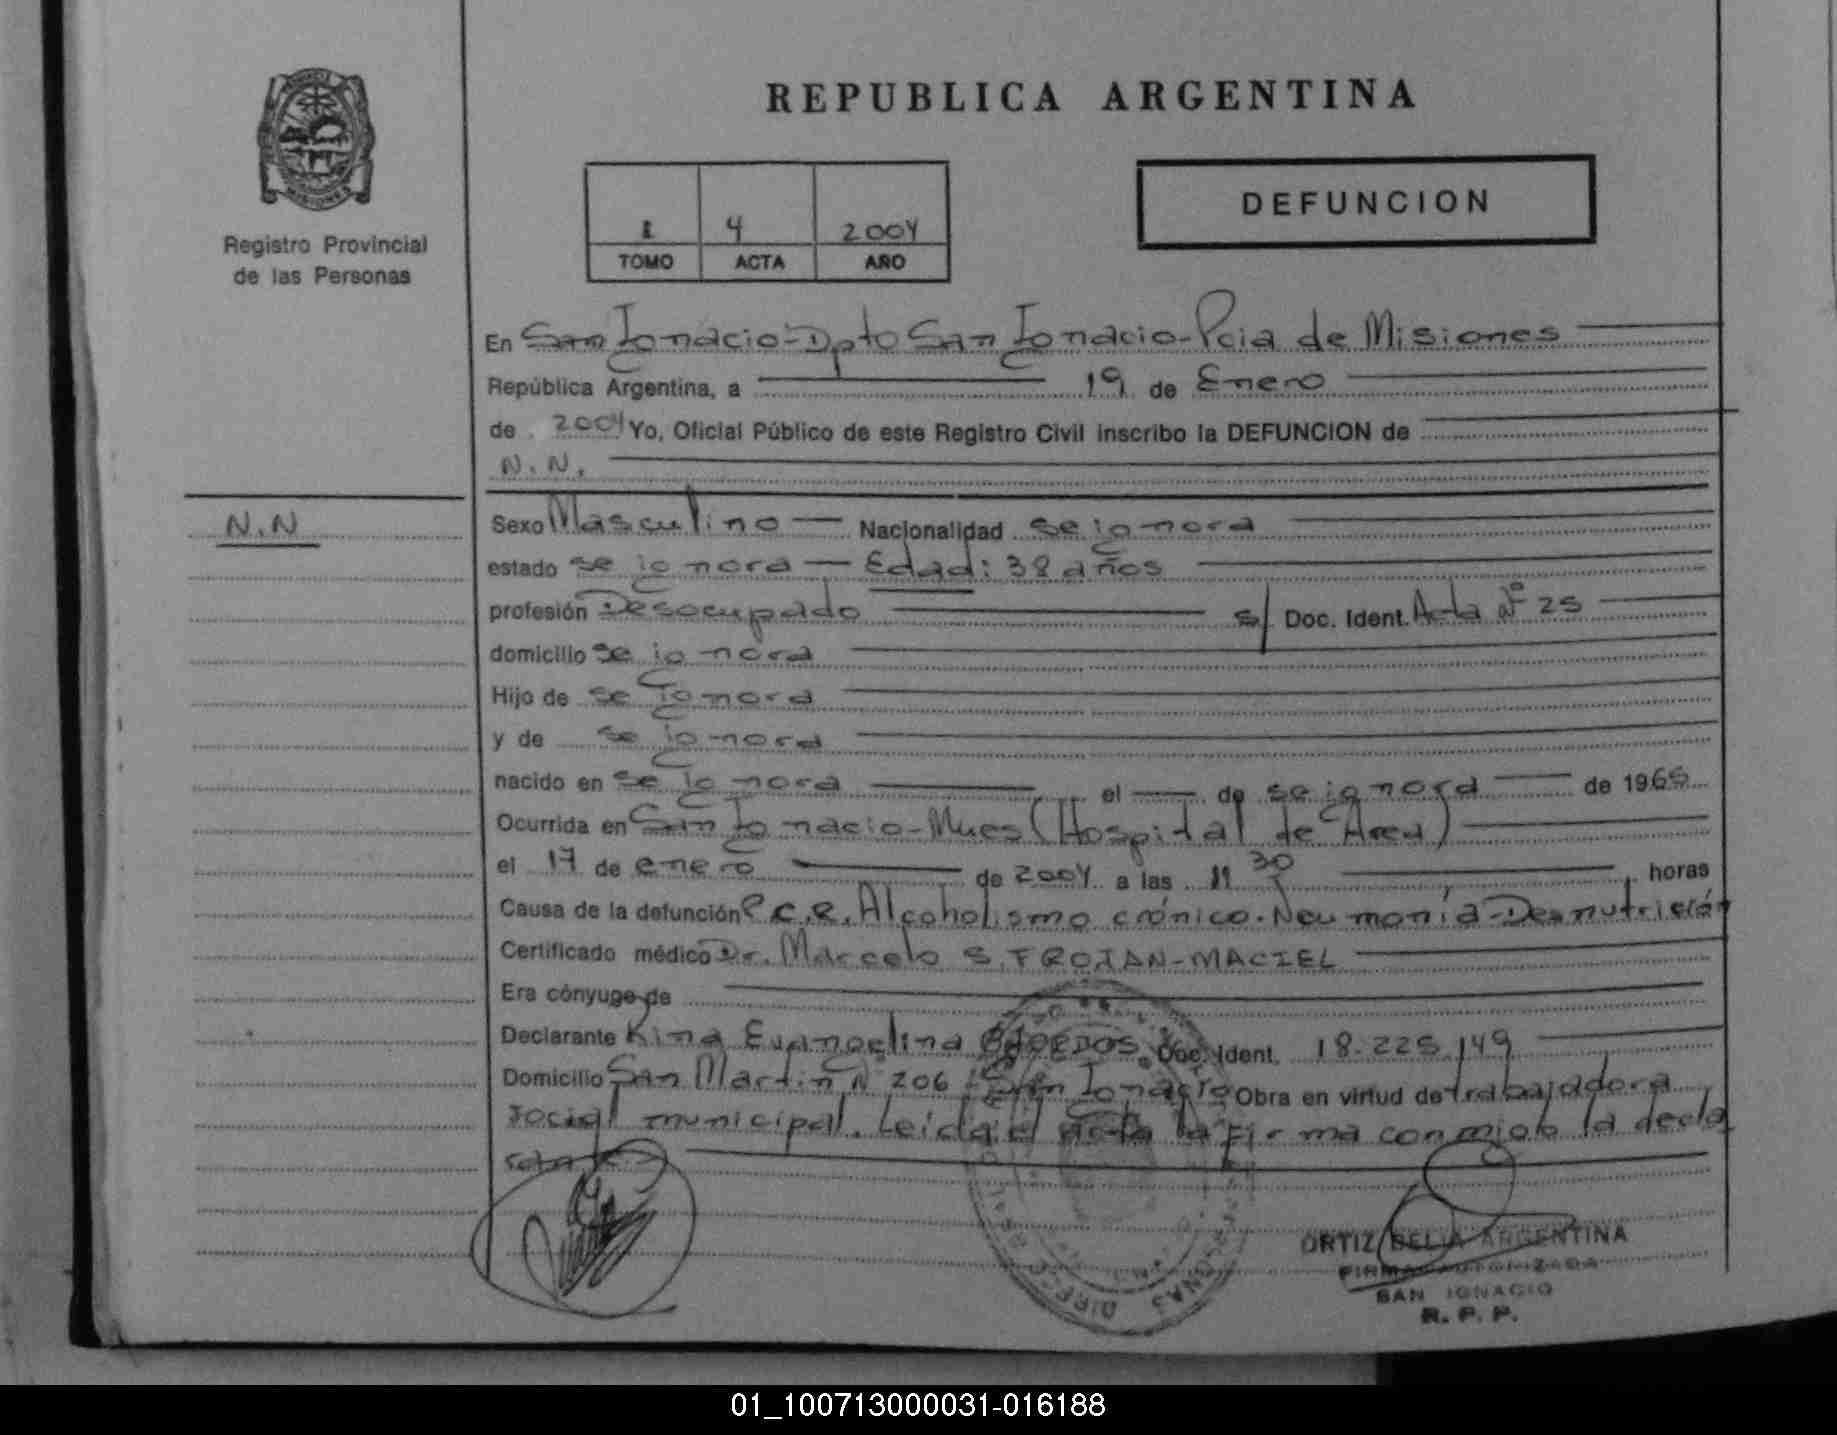 REPUBLICA ARGENTINA
PROVINCIA
MISIONES
Registro Provincial
de las Personas
I 4 2004
TOMO ACTA AÑO
DEFUNCION
En San Ignacio-Dpto San Ignacio-Pcia de Misiones
República Argentina, a 19 de Enero
de 2004 Yo, Oficial Público de este Registro Civil inscribo la DEFUNCION de
N.N.
N.N
Sexo Masculino Nacionalidad se ignora
estado se ignora - Edad: 38 años
profesión Desocupado s/ Doc. Ident. Acta nº 25
domicilio se ignora
Hijo de se ignora
y de se ignora
nacido en se ignora el de se ignora de 1965
Ocurrida en San Ignacio-Mnes (Hospital de Area)
el 17 de enero de 2004 a las 11 30 horas
Causa de la defunción P.C.R. Alcoholismo crónico. Neumonía-Desnutrición
Certificado médico Dr. Marcelo S. TROJAN-MACIEL
Era cónyuge de
Declarante Rina Evangelina Doc. Ident. 18.225.149
Domicilio San Martin Nº 206 San Ignacio Obra en virtud de trabajadora
social municipal. Leída el acta la firma conmigo la decla
rante
ORTIZ DELIA ARGENTINA
FIRMA AUTORIZADA
SAN IGNACIO
R. P. P.
01_100713000031-016188